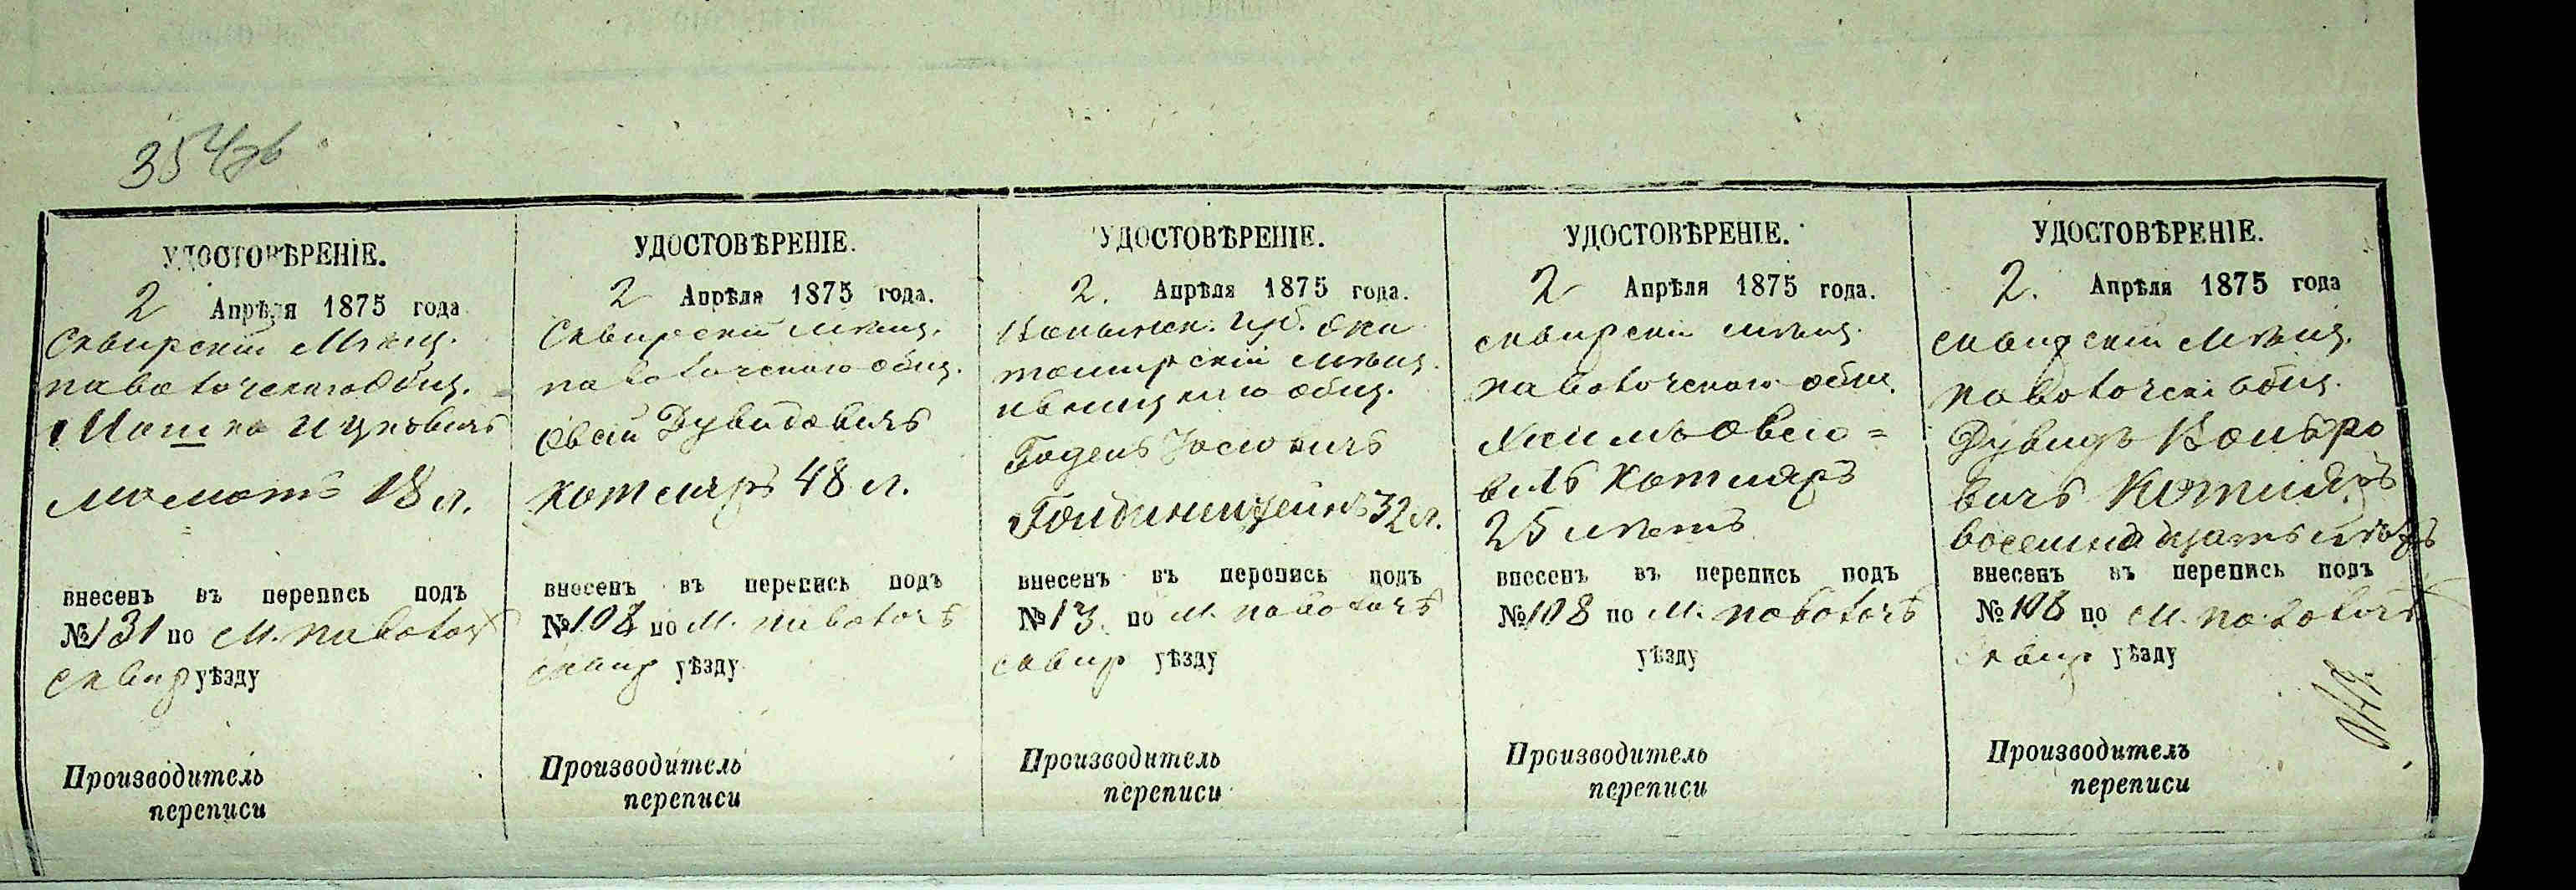 354 об
УДОСТОВѢРЕНІЕ.
2 Апрѣля 1875 года
Сквирскій Мѣщ.
паволочскаго Общ.
Мошко Ицковичъ
18 л.
внесенъ въ перепись подъ
№ 131 по М. паволоч
сквир уѣзду
Производитель
переписи
УДОСТОВѢРЕНІЕ.
2 Апрѣля 1875 года.
Сквирскій мѣщ.
паволочскаго общ.
Овсій Дувидовичъ
котляръ 48 л.
внесенъ въ перепись подъ
№ 108 по М. паволочѣ
сквир уѣзду
Производитель
переписи
УДОСТОВѢРЕНІЕ.
2. Апрѣля 1875 года.
Волынск. губ. жи
томирскій мѣщ.
общ.
Іосіовичъ
32 л.
внесенъ въ перепись подъ
№ 13. по М. паволочѣ
сквир уѣзду
Производитель
переписи
УДОСТОВѢРЕНІЕ.
2 Апрѣля 1875 года.
сквирскій мѣщ.
паволочскаго общ.
Хаимъ Овсіо=
вичъ Котляръ
25 лѣтъ
внесенъ въ перепись подъ
№ 108 по М. паволочѣ
уѣзду
Производитель
переписи
УДОСТОВѢРЕНІЕ.
2. Апрѣля 1875 года
сквирскій мѣщ.
паволочскі общ.
Дувидъ
вичъ Котляръ
восемнадцать лѣтъ
внесенъ въ перепись подъ
№ 108 по М. паволочѣ
сквир уѣзду
Производитель
переписи